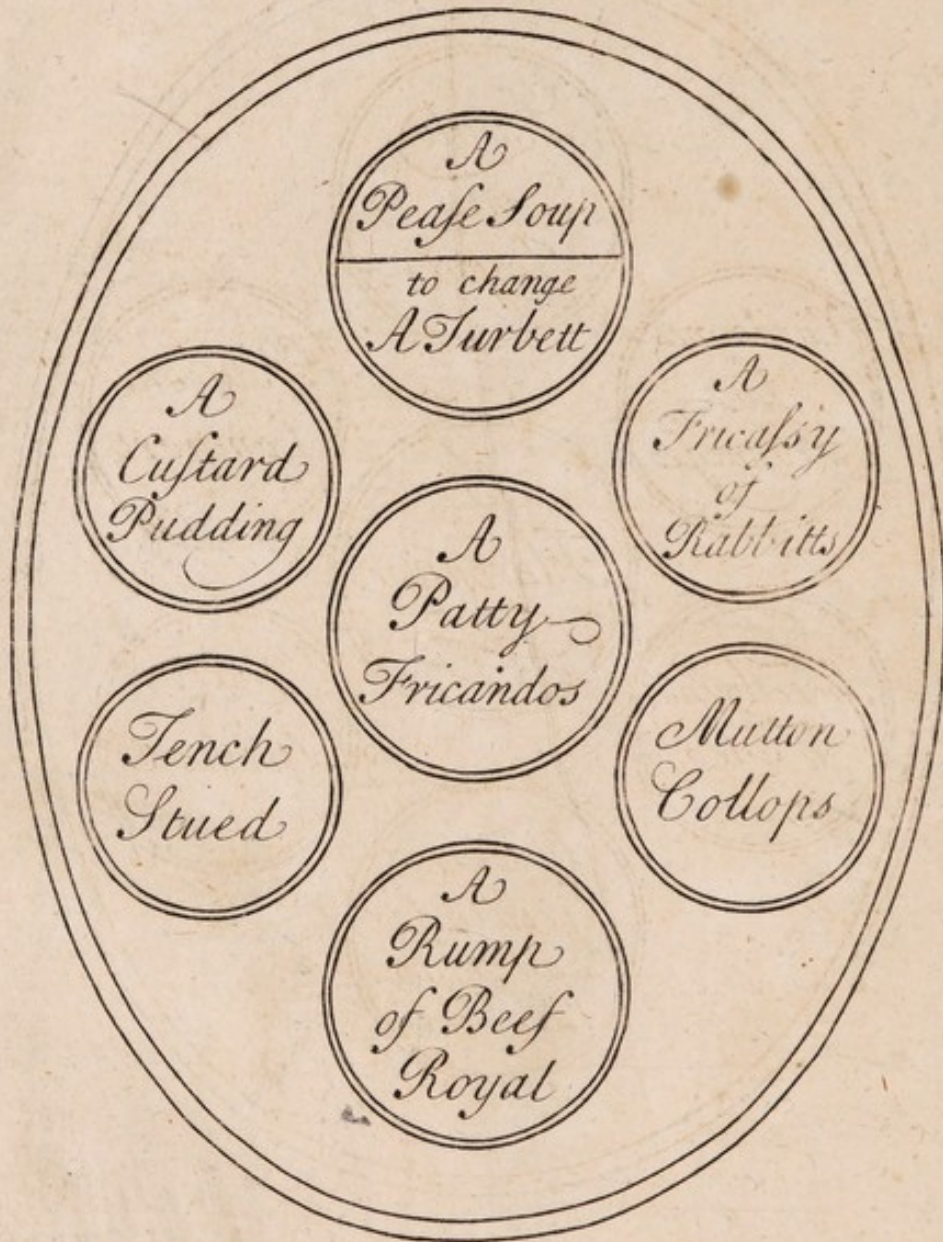 A
Peaſe Soup
to change
A Turbett
A
Cuſtard
Pudding
A
Fricaſsy
of
Rabbitts
A
Patty
Fricandos
Tench
Stued
Mutton
Collops
A
Rump
of Beef
Royal